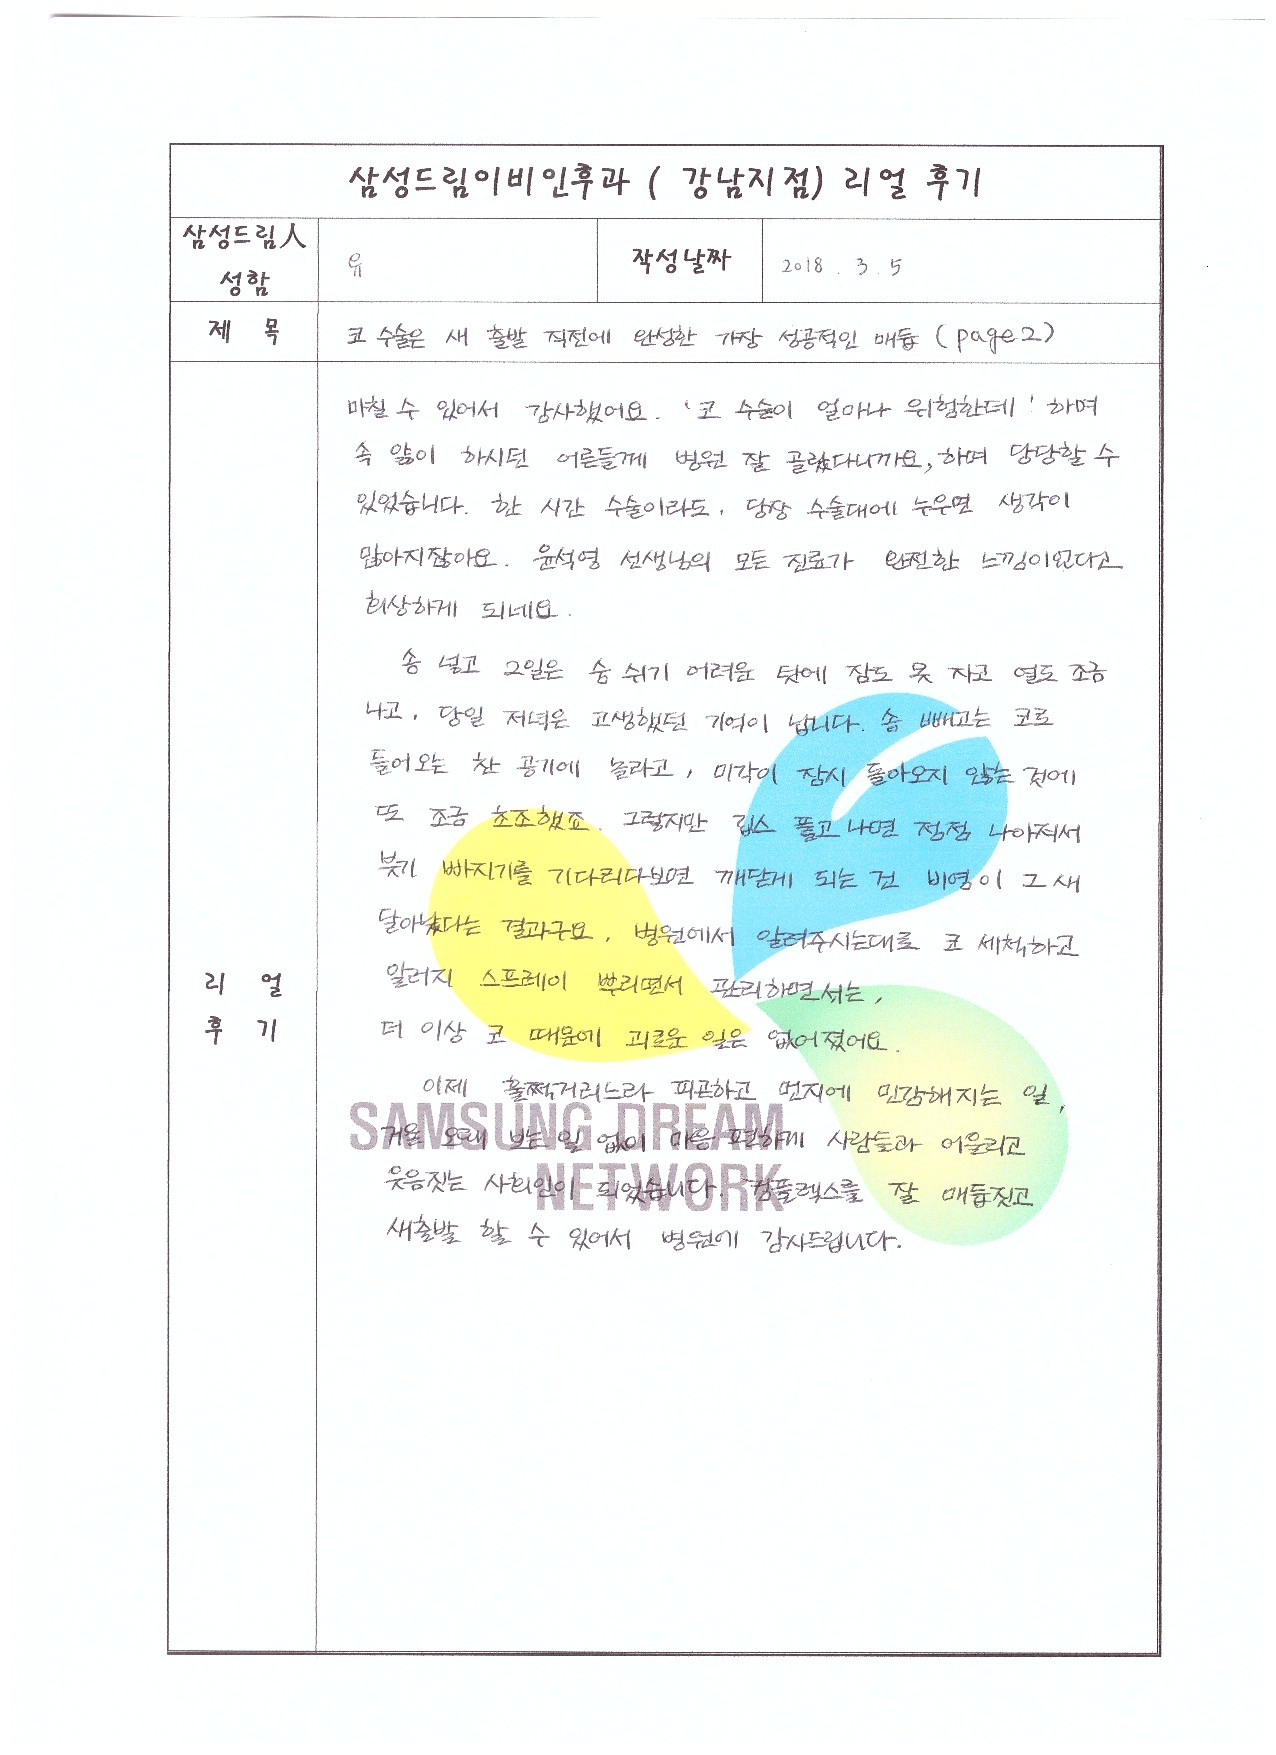 삼성드림이비인후과 ( 강남지점) 리얼 후기
삼성드림人
성함
유
작성날짜
2018 . 3 . 5
제 목
코 수술은 새 출발 직전에 완성한 가장 성공적인 매듭 (page2)
마칠 수 있어서 감사했어요. '코 수술이 얼마나 위험한데' 하며
속 앓이 하시던 어른들께 병원 잘 골랐다니까요, 하며 당당할 수
있었습니다. 한 시간 수술이라도, 당장 수술대에 누우면 생각이
많아지잖아요. 윤석영 선생님의 모든 진료가 완전한 느낌이었다고
회상하게 되네요.
솜 넣고 2일은 숨 쉬기 어려운 탓에 잠도 못 자고 열도 조금
나고, 당일 저녁은 고생했던 기억이 납니다. 솜 빼고는 코로
들어오는 찬 공기에 놀라고, 미각이 잠시 돌아오지 않는 것에
또 조금 초조했죠. 그렇지만 깁스 풀고 나면 점점 나아져서
붓기 빠지기를 기다리다보면 깨닫게 되는 건 비염이 그 새
달아났다는 결과구요, 병원에서 알려주시는대로 코 세척하고
알러지 스프레이 뿌리면서 관리하면서는,
더 이상 코 때문에 괴로운 일은 없어졌어요.
이제 훌쩍거리느라 피곤하고 먼지에 민감해지는 일,
거울 오래 보는 일 없이 마음 편하게 사람들과 어울리고
웃음짓는 사회인이 되었습니다. 컴플렉스를 잘 매듭짓고
새출발 할 수 있어서 병원에 감사드립니다.
리 얼
후 기
SAMSUNG DREAM
NETWORK